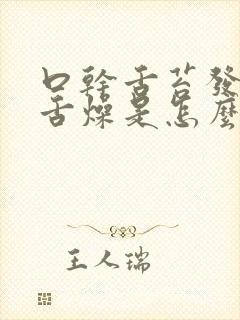 口幹舌苔發
舌燥是怎麼
王人瑞